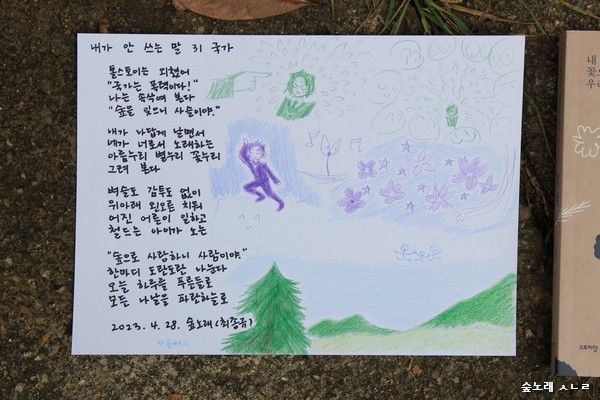 내가 안 쓰는 말 31 국가
톨스토이는 외쳤어
"국가는 폭력이다!"
나는 속삭여 본다
"숲을 잊으니 사슬이야."
내가 나답게 날면서
네가 너로서 노래하는
아름누리 별누리 꽃누리
그려 본다
벼슬도 감투도 없이
위아래 왼오른 치워
어진 어른이 일하고
철드는 아이가 노는
"숲으로 사랑하니 사람이야."
한마디 도란도란 나눈다
오늘 하루를 푸른들로
모든 나날을 파란하늘로
2023. 4. 28. 숲노래 (최종규)
내
꽃
우리
스토리닷
숲노래 ㅅㄴㄹ